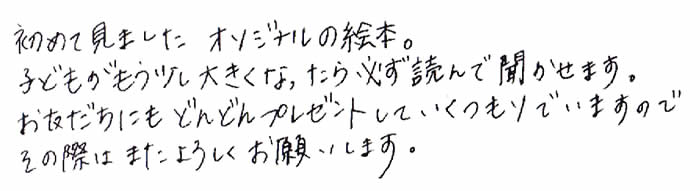 初めて見ました オリジナルの絵本。
子どもがもう少し大きくなったら必ず読んで聞かせます。
お友だちにもどんどんプレゼントしていくつもりでいますので
その際はまたよろしくお願いします。